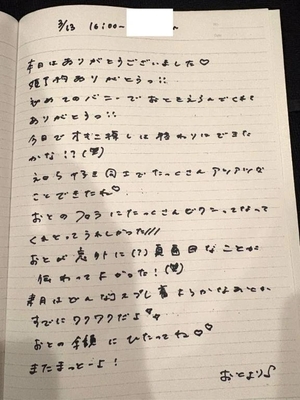 3/13 16:00-
本日はありがとうございました♡
姫予約ありがとうっ!!
初めてのバニーでおとをえらんでくれて
ありがとうっ!!
今日でオキニ探しは終わりにできた
かな!?(笑)
えロち好き同士でたっくさんアツアツな
ことできたね♡
おとのフロラにたっくさんビクンってなって
くれてとってもうれしかった///
おとが意外に(?)真面目なことが
伝わってよかった!(笑)
来月はどんなコスプレ着ようかなあとか
すでにワクワクだよ♡
おとの余韻にひたってね♡♡
またまっとーよ!
おとより♪